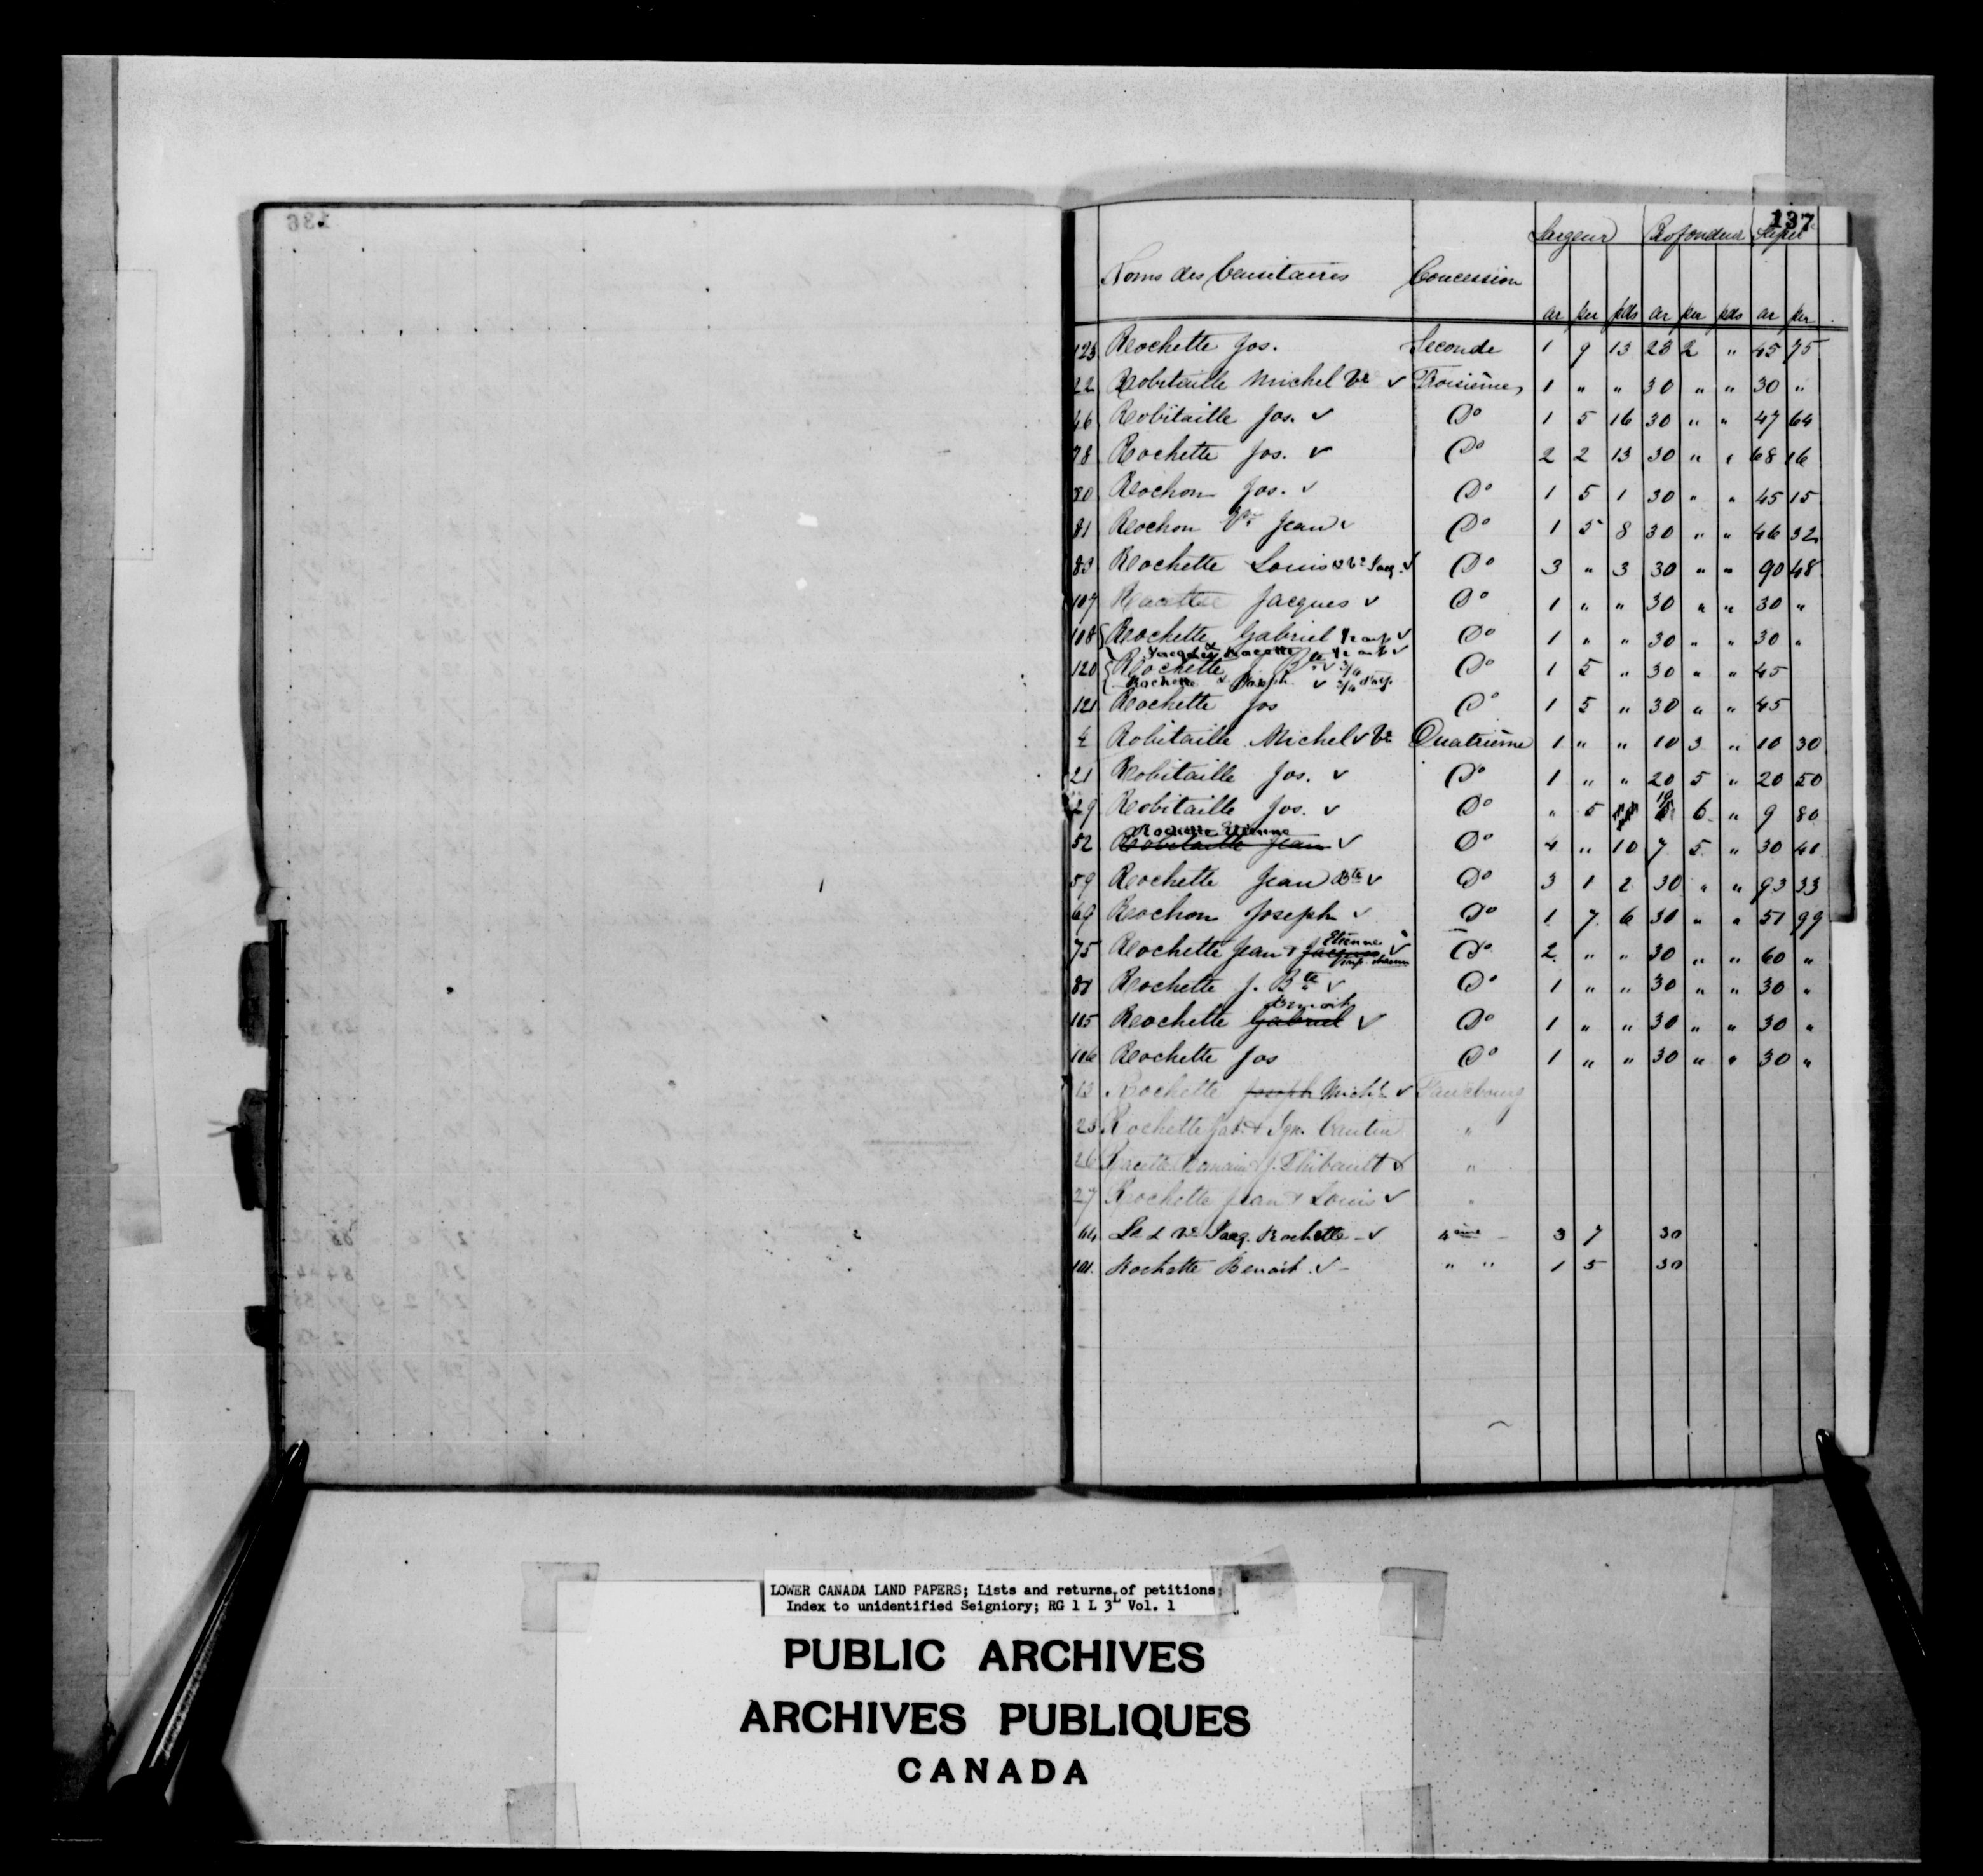 136
137
Largeur Profondeur Super
Noms des Censitaires Concession
ar per pds ar per pds ar per
123 Rochette Jos. Seconde 1 9 13 23 2 " 45 75
22 Robitaille Michel Ve ✓ Troisième 1 " " 30 " " 30 "
46 Robitaille Jos. ✓ Do 1 5 16 30 " " 47 64
78 Rochette Jos. ✓ Do 2 2 13 30 " " 68 16
80 Rochon Jos. ✓ Do 1 5 1 30 " " 45 15
81 Rochon Jean ✓ Do 1 5 8 30 " " 46 32
83 Rochette Louis Jacq. ✓ Do 3 " 3 30 " " 90 48
107 Racette Jacques ✓ Do 1 " " 30 " " 30 "
108 Rochette Gabriel 1/2 arp ✓ Do 1 " " 30 " " 30 "
& Jacques Racette 1/2 arp ✓
120 Rochette J Bte ✓ 3/4 Do 1 5 " 30 " " 45
Rochette & Joseph ✓ 3/4 d'arp.
121 Rochette Jos Do 1 5 " 30 " " 45
4 Robitaille Michel ✓ Ve Quatrième 1 " " 10 3 " 10 30
21 Robitaille Jos. ✓ Do 1 " " 20 5 " 20 50
29 Robitaille Jos. ✓ Do " 5 19 6 " 9 80
Rochette Etienne
52 Robitaille Jean ✓ Do 4 " 10 7 5 " 30 40
59 Rochette Jean Bte ✓ Do 3 1 2 30 " " 93 33
69 Rochon Joseph ✓ Do 1 7 6 30 " " 51 99
Etienne
75 Rochette Jean & Jacques ✓ Do 2 " " 30 " " 60 "
1 arp. chacun
88 Rochette J. Bte ✓ Do 1 " " 30 " " 30 "
Benoit
105 Rochette Gabriel ✓ Do 1 " " 30 " " 30 "
106 Rochette Jos Do 1 " " 30 " " 30 "
13 Rochette Joseph Michl ✓ Faucbourg
23 Rochette Gab. & Ign. Cantin "
26 Racette Romain & J. Thibault ✓ "
27 Rochette Jean & Louis ✓ "
64 La d Ve Jacq. Rochette - ✓ 4ème - 3 7 30
101. Rochette Benoit. ✓ - " " 1 5 30
LOWER CANADA LAND PAPERS; Lists and returns of petitions;
Index to unidentified Seigniory; RG 1 L 3L Vol. 1
PUBLIC ARCHIVES
ARCHIVES PUBLIQUES
CANADA